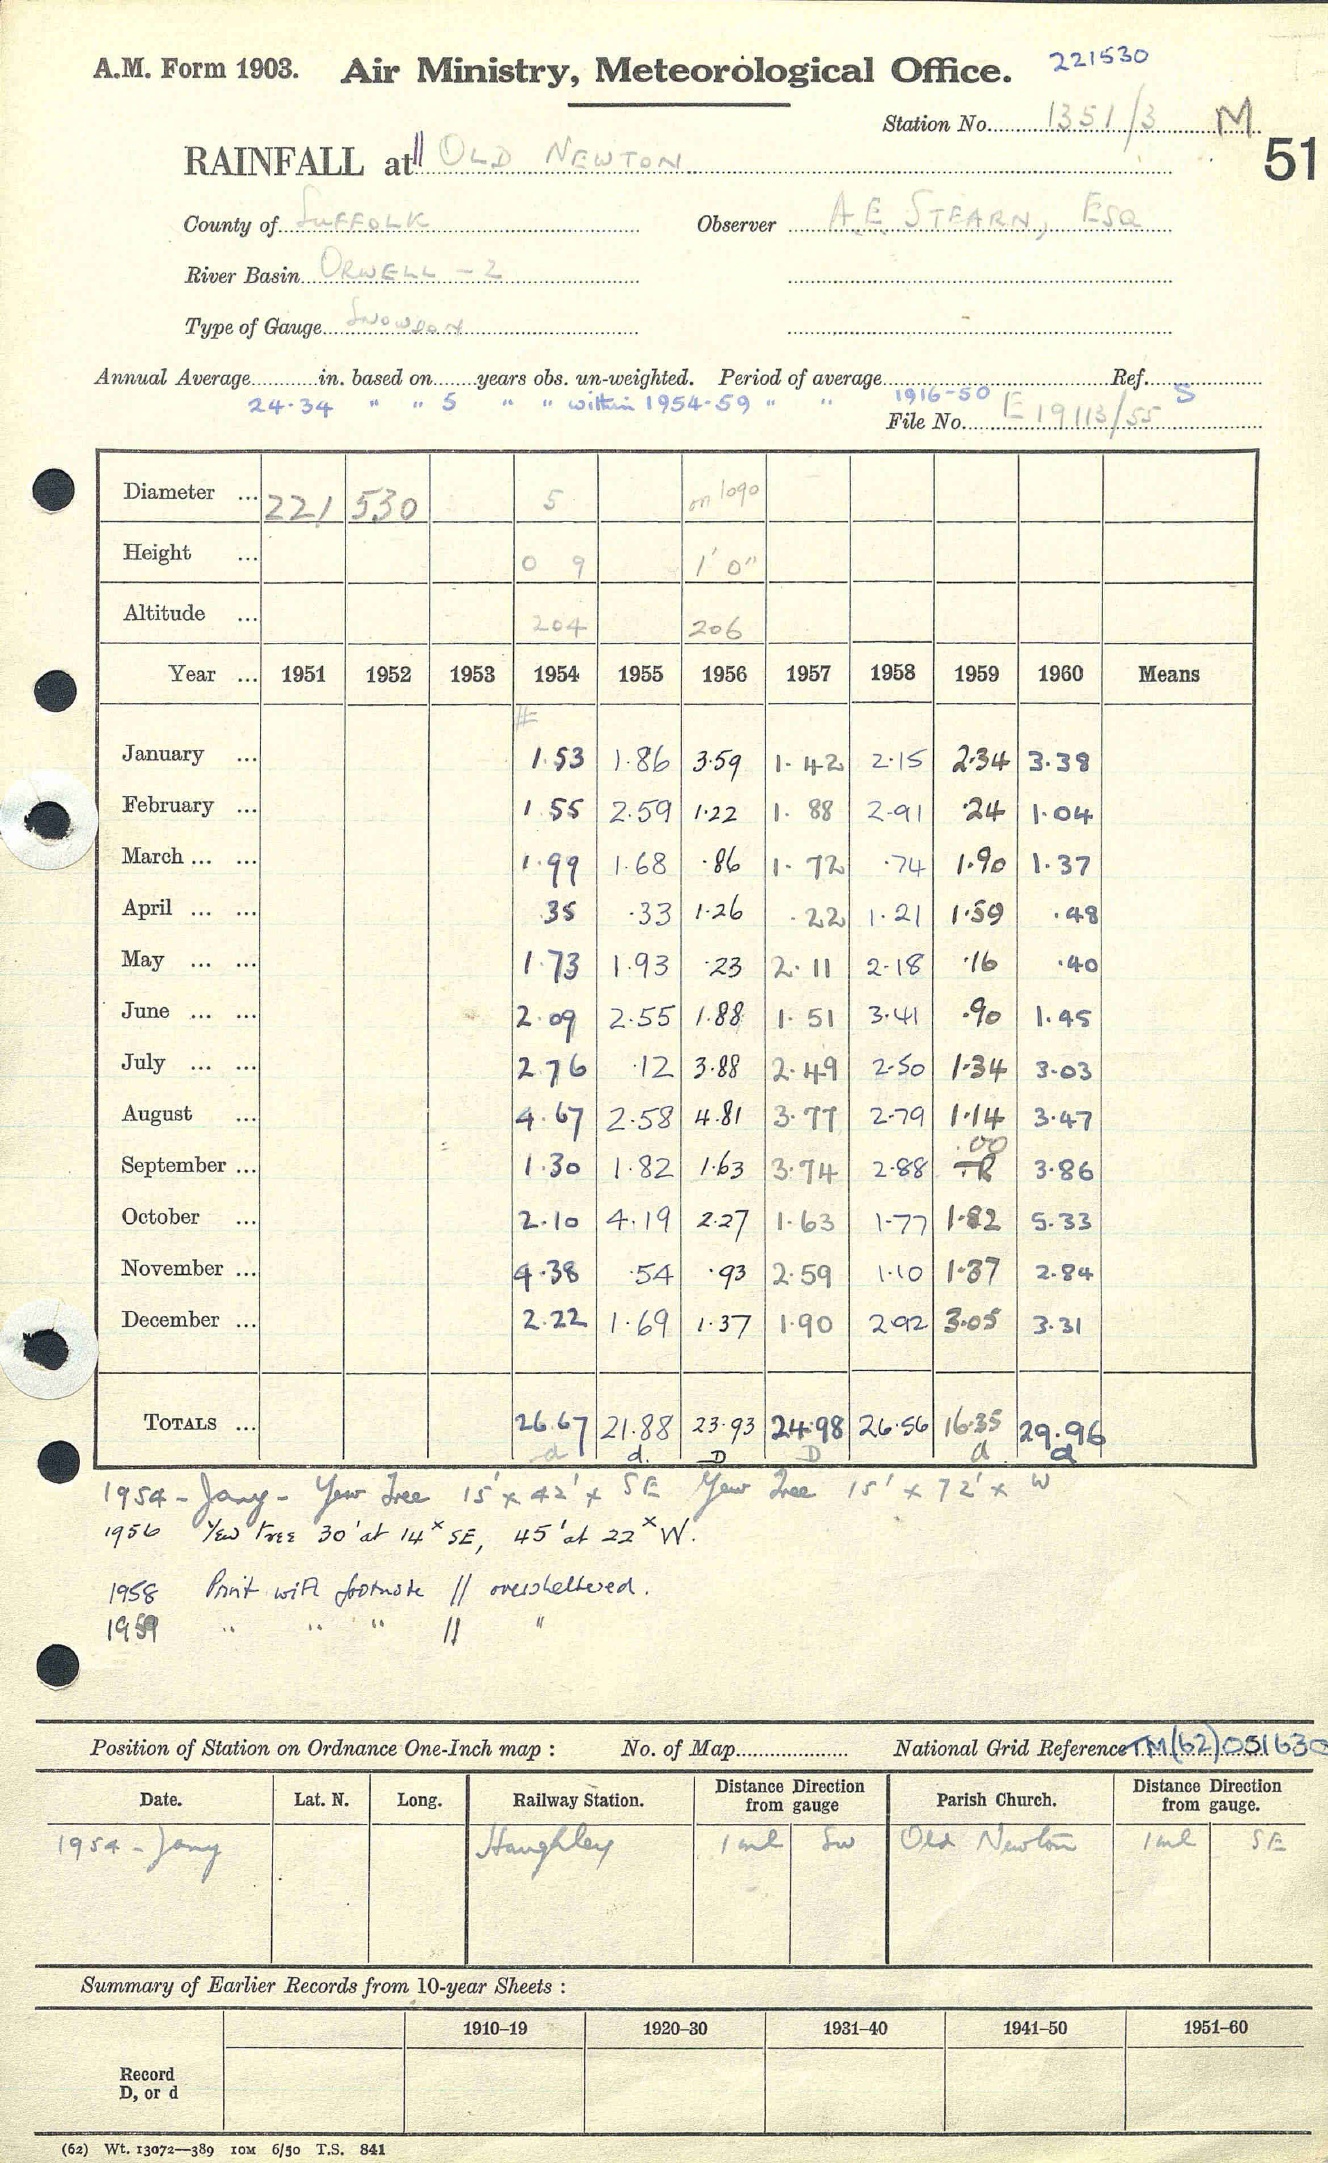 A.M. Form 1903. Air Ministry, Meteorological Office. 221530
Station No. 1351/3 M
RAINFALL at || OLD NEWTON 51
County of SUFFOLK Observer A.E. STEARN, ESQ
River Basin ORWELL - 2
Type of Gauge SNOWDON
Annual Average in. based on years obs. un-weighted. Period of average Ref.
24·34 " " 5 " " within 1954-59 " " 1916-50 S
File No. E 19113/55
Diameter ... 221 530 5 on 1090
Height ... 0 9 1' 0"
Altitude ... 204 206
Year ... 1951 1952 1953 1954 1955 1956 1957 1958 1959 1960 Means
#
January ... 1.53 1.86 3.59 1.42 2.15 2.34 3.38
February ... 1.55 2.59 1.22 1.88 2.91 .24 1.04
March ... ... 1.99 1.68 .86 1.72 .74 1.90 1.37
April ... ... .35 .33 1.26 .22 1.21 1.59 .48
May ... ... 1.73 1.93 .23 2.11 2.18 .16 .40
June ... ... 2.09 2.55 1.88 1.51 3.41 .90 1.45
July ... ... 2.76 .12 3.88 2.49 2.50 1.34 3.03
August ... 4.67 2.58 4.81 3.77 2.79 1.14 3.47
.00
September ... 1.30 1.82 1.63 3.74 2.88 TR 3.86
October ... 2.10 4.19 2.27 1.63 1.77 1.82 5.33
November ... 4.38 .54 .93 2.59 1.10 1.37 2.84
December ... 2.22 1.69 1.37 1.90 2.92 3.05 3.31
TOTALS ... 26.67 21.88 23.93 24.98 26.56 16.35 29.96
d d. D D d d
1954 - Jany - Yew Tree 15' x 42' x SE Yew Tree 15' x 72' x W
1956 Yew tree 30' at 14x SE, 45' at 22x W.
1958 Print with footnote // oversheltered.
1959 " " " // "
Position of Station on Ordnance One-Inch map : No. of Map National Grid Reference TM(62)051630
Date. Lat. N. Long. Railway Station. Distance Direction from gauge Parish Church. Distance Direction from gauge.
1954 - Jany Haughley 1 ml SW Old Newton 1 ml SE
Summary of Earlier Records from 10-year Sheets :
1910–19 1920–30 1931–40 1941–50 1951–60
Record
D, or d
(62) Wt. 13072—389 10M 6/50 T.S. 841